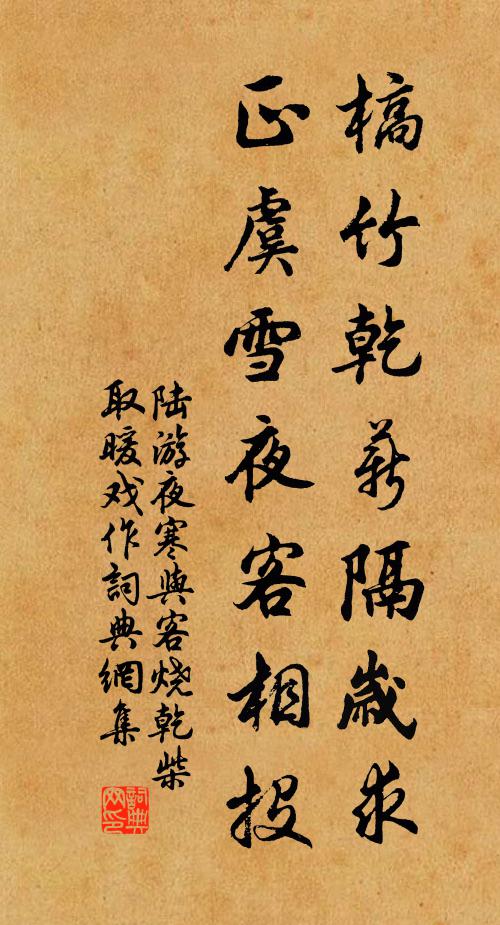 槁竹乾薪隔歲求
正虞雪夜客相投
陆游夜寒與客燒乾柴
取暖戏作詞典網集
詞典
网印